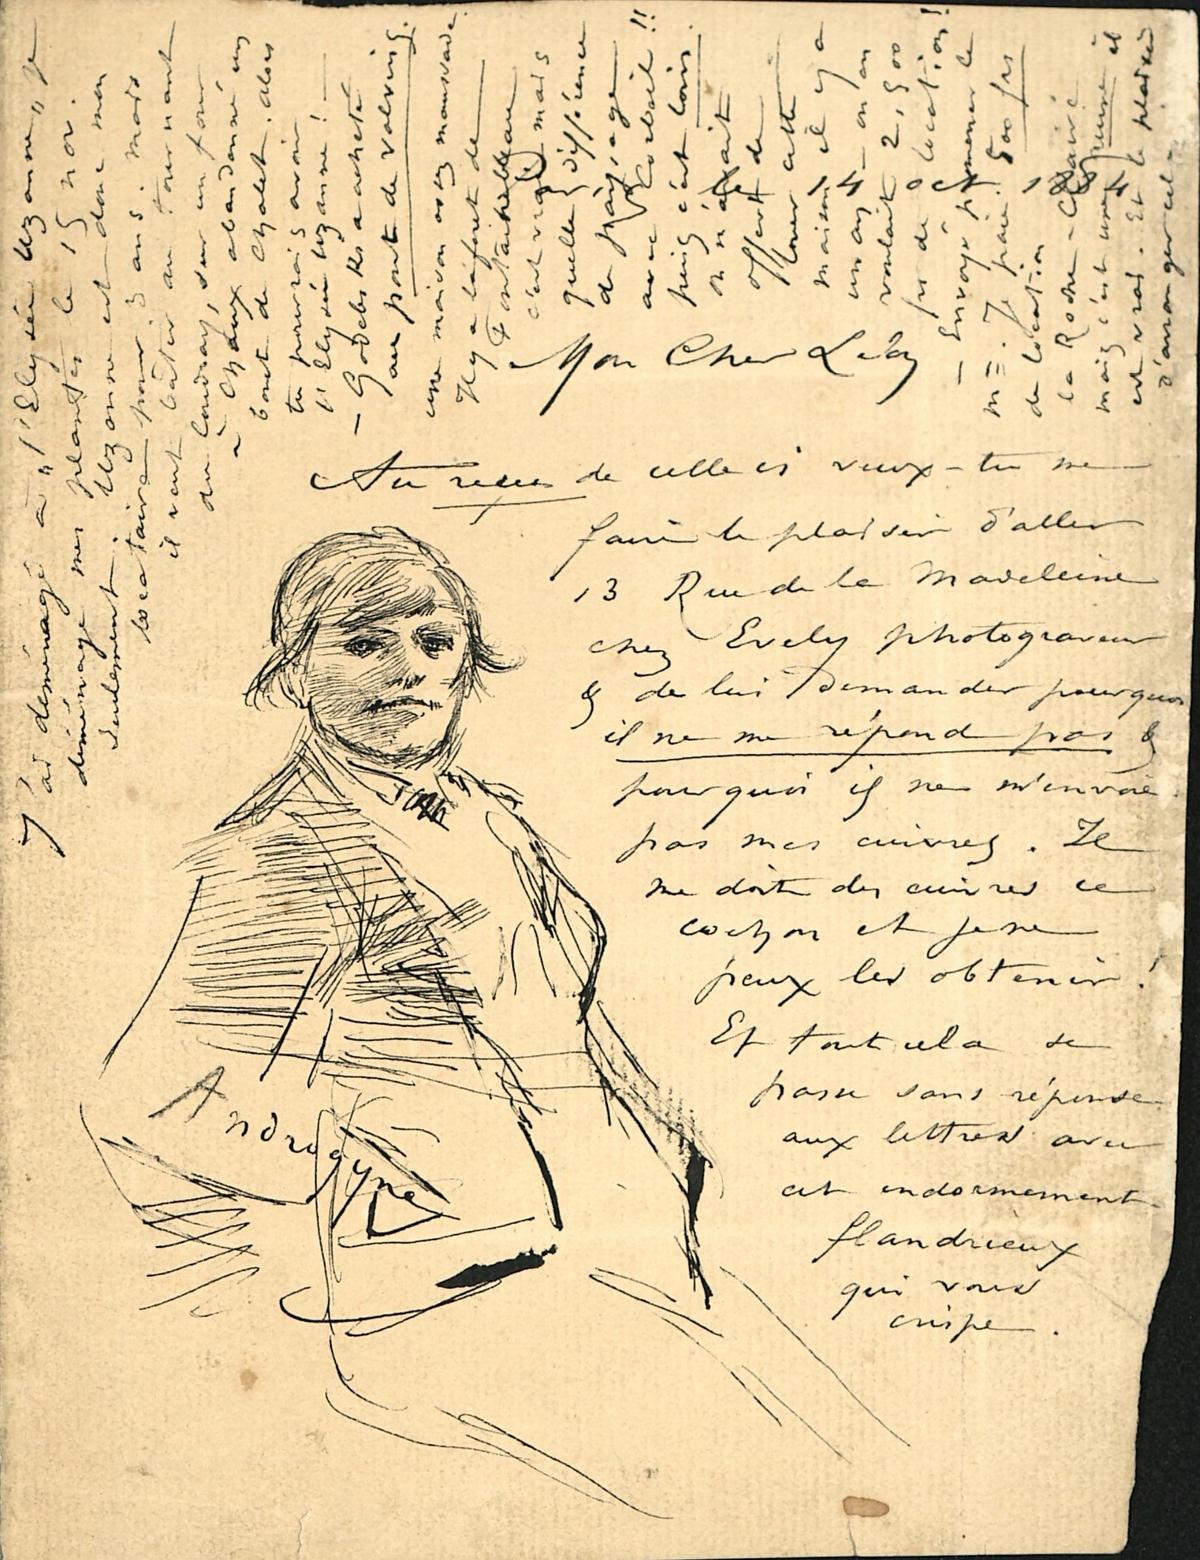 Le 14 oct 1884
Mon Cher Léon
Au reçu de celle ci veux-tu me
faire le plaisir d'aller
13 Rue de la Madeleine
chez Evely photograveur
& de lui demander pourquoi
il ne me répond pas &
pourquoi il ne m'envoie
pas mes cuivres. Il
me doit des cuivres ce
cochon et je ne
peux les obtenir !
Et tout cela se
passe sans réponse
aux lettres avec
cet endormement
flandrieux
qui vous
crispe.
Androgyne
J'ai déménagé à "l'Elysée Uzanne" je
déménage mes plantes le 15 nov.
seulement. Uzanne est donc mon
locataire pour 3 ans. mais
il veut bâtir au tournant
du Coudray, sur un four
à Chaux abandonné un
bout de Chalet. alors
tu pourrais avoir
l'Elysée Uzanne !
— Godebski a acheté
au pont de Valvins.
une maison assez mauvaise.
Il y a la forêt de
Fontainebleau
c'est vrai, mais
quelle différence
de paysage
avec Corbeil !!
puis c'est loin.
on m'avait
offert de
louer cette
maison il y a
un an — on en
voulait 2,500
frs de location !
— Envoyé promener le
m=. Je paie 500 frs
de location
la Roche-Claire
mais c'est une ruine il
est vrai. Et le plaisir
d'arranger cela.